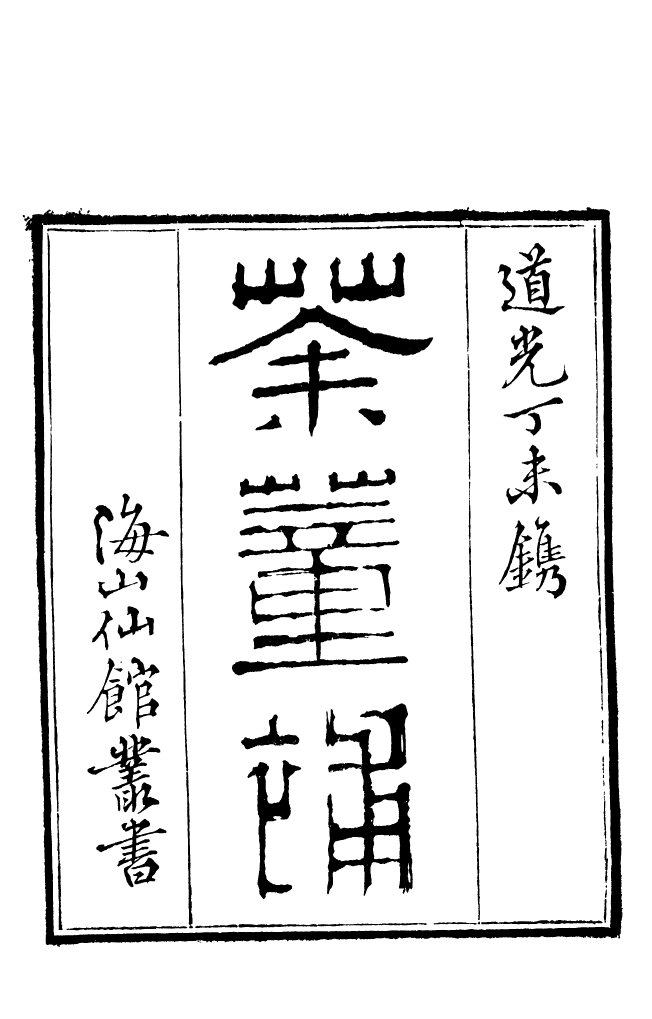 道光丁未鐫
茶董補
海山仙館叢書